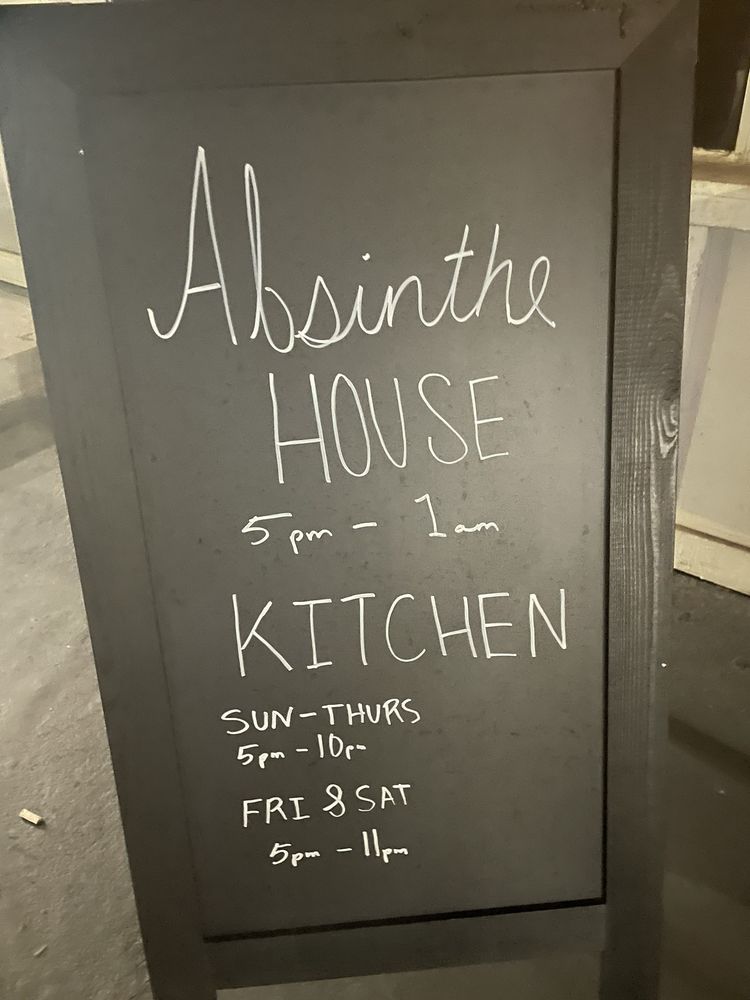 Absinthe
HOUSE
5pm - 1am
KITCHEN
SUN-THURS
5pm-10pm
FRI & SAT
5pm -11pm